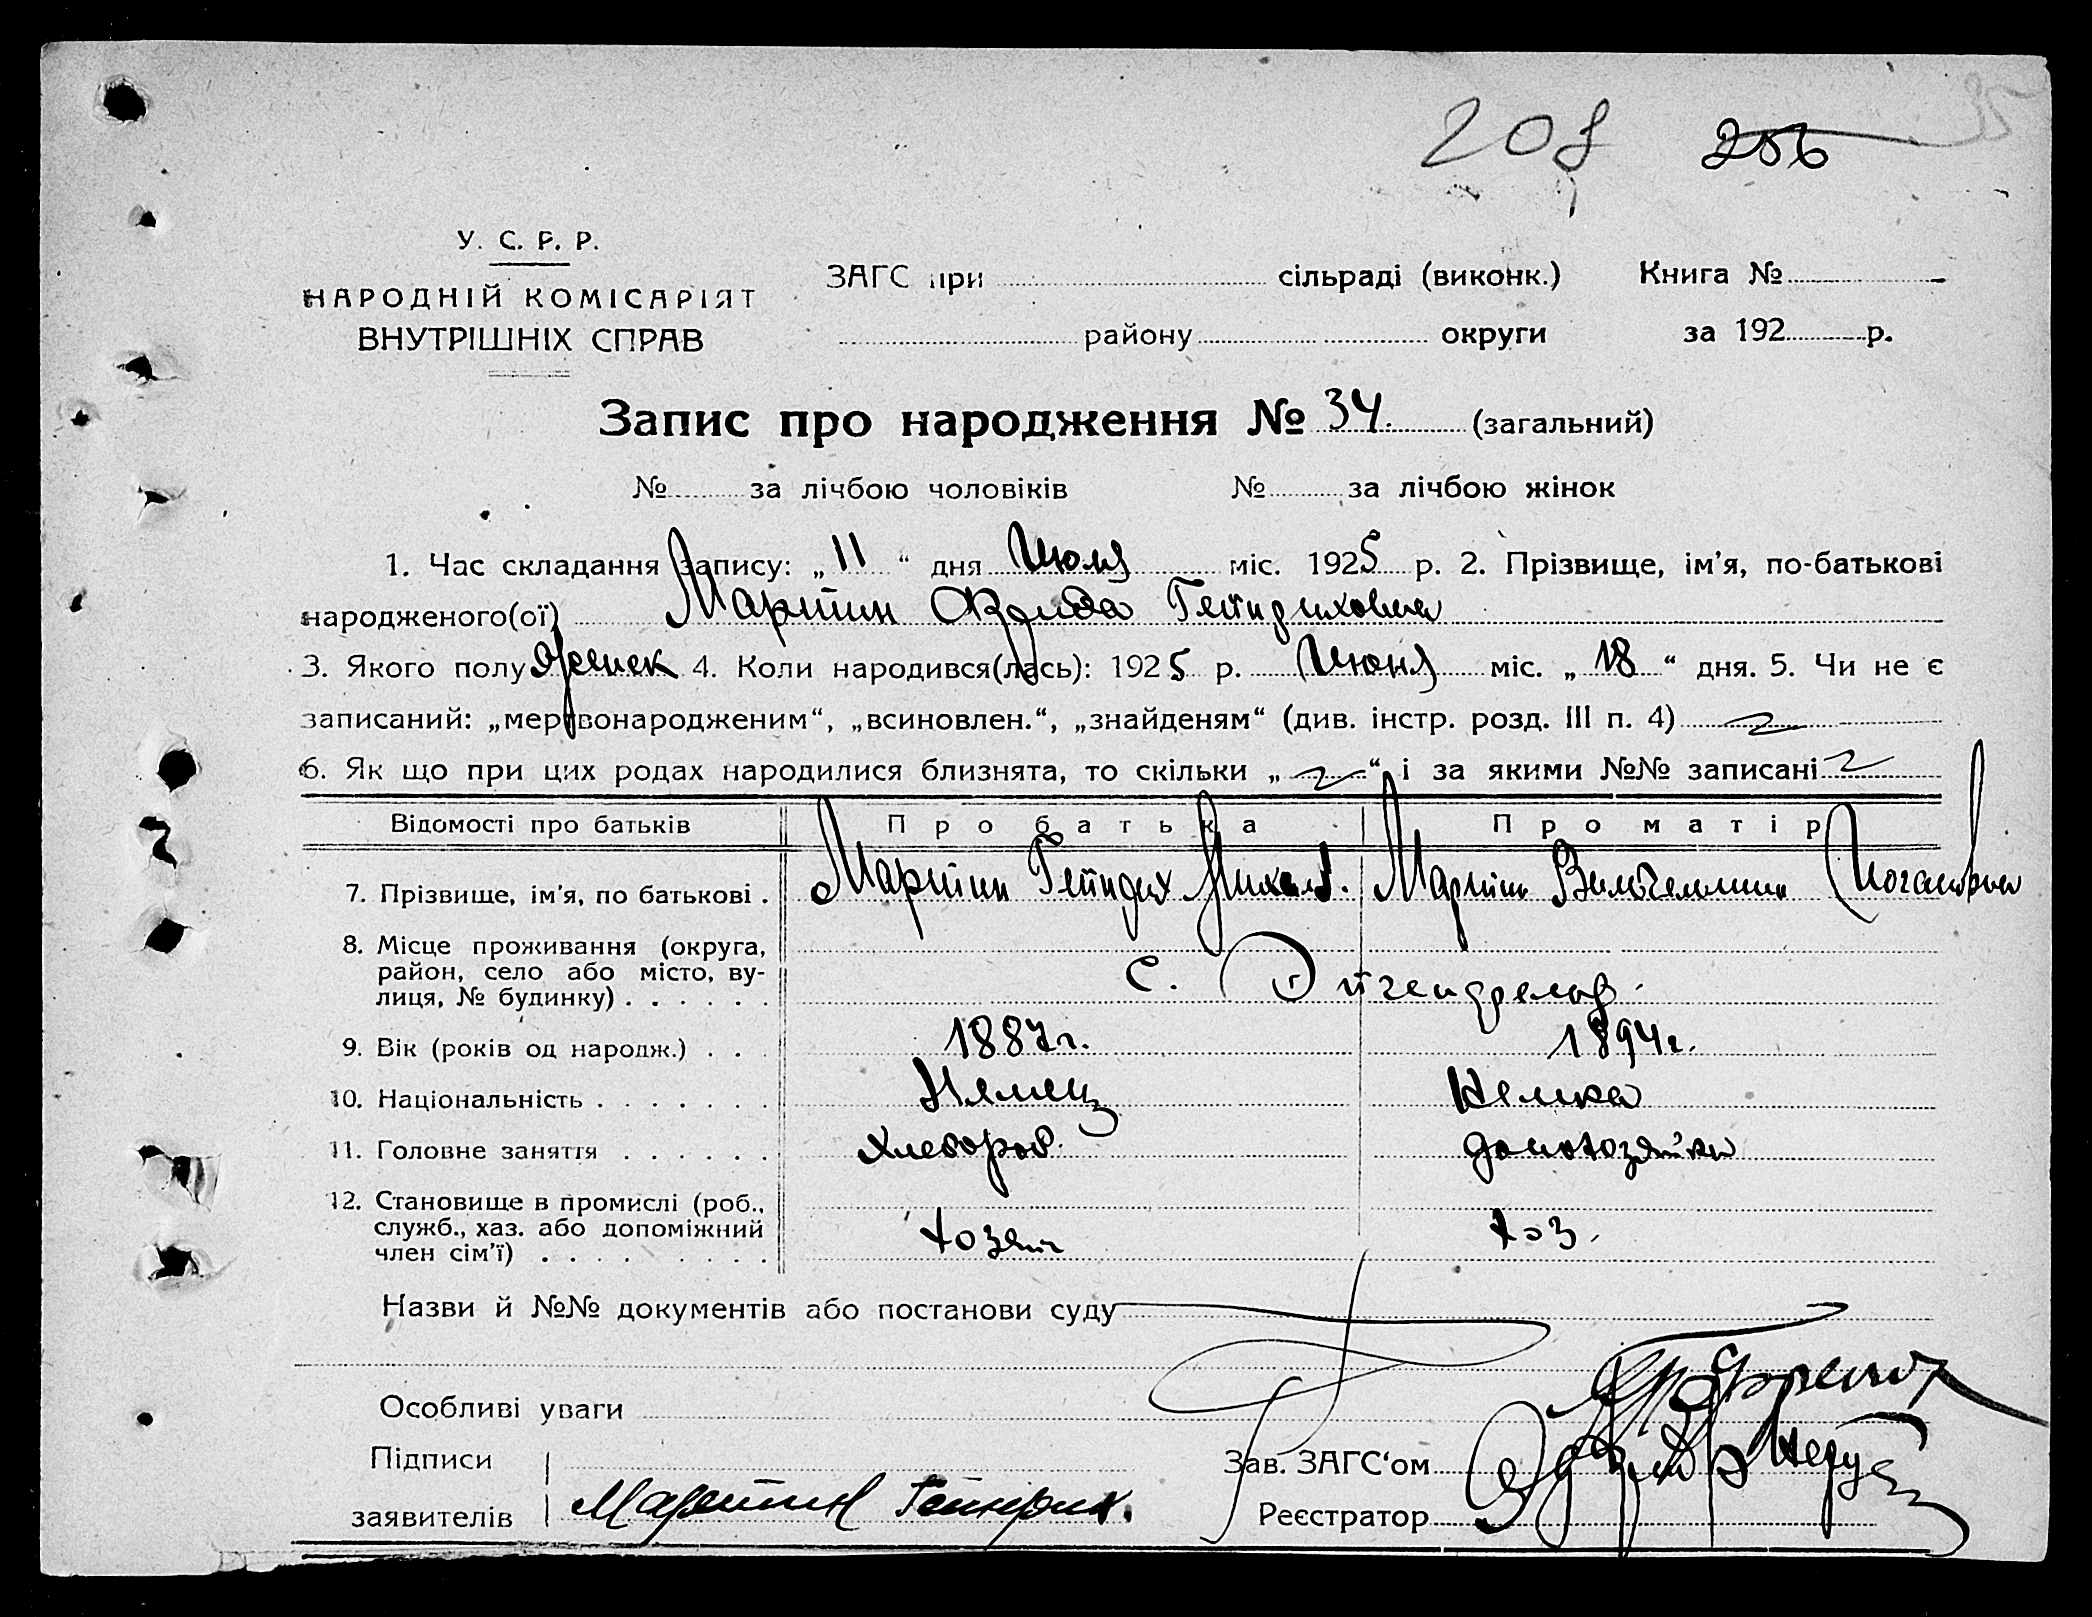 208 256 35
У. С. Р. Р.
НАРОДНІЙ КОМІСАРІЯТ
ВНУТРІШНІХ СПРАВ
ЗАГС при сільраді (виконк.) Книга №
району округи за 192 р.
Запис про народження № 34. (загальний)
№ за лічбою чоловіків № за лічбою жінок
1. Час складання запису: „ 11 “ дня Июля міс. 1925 р. 2. Прізвище, ім’я, по-батькові
народженого(ої) Мартин Гейндиховна
3. Якого полу женск 4. Коли народився(лась): 1925 р. Июня міс. „ 18 “ дня. 5. Чи не є
записаний: „мертвонародженим“, „всиновлен.“, „знайденям“ (див. інстр. розд. III п. 4)
6. Як що при цих родах народилися близнята, то скільки „ “ і за якими №№ записані
Відомості про батьків Про батька Про матір
7. Прізвище, ім’я, по батькові . Мартин Гейндих Михел. Мартин Вильгельмина Иогановна
8. Місце проживання (округа,
район, село або місто, ву-
лиця, № будинку) . . . . . . с. Эйгендфельд.
9. Вік (років од народж.) . . . 1887г. 1894г.
10. Національність . . . . . . . Немец Немка
11. Головне заняття . . . . . . Хлебороб. домохозяйка
12. Становище в промислі (роб.,
служб., хаз. або допоміжний
член сім’ї) . . . . . . . . . хозяин хоз.
Назви й №№ документів або постанови суду
Особливі уваги
Підписи
заявителів Мартин Гейндрих.
Зав. ЗАГС‘ом
Реєстратор